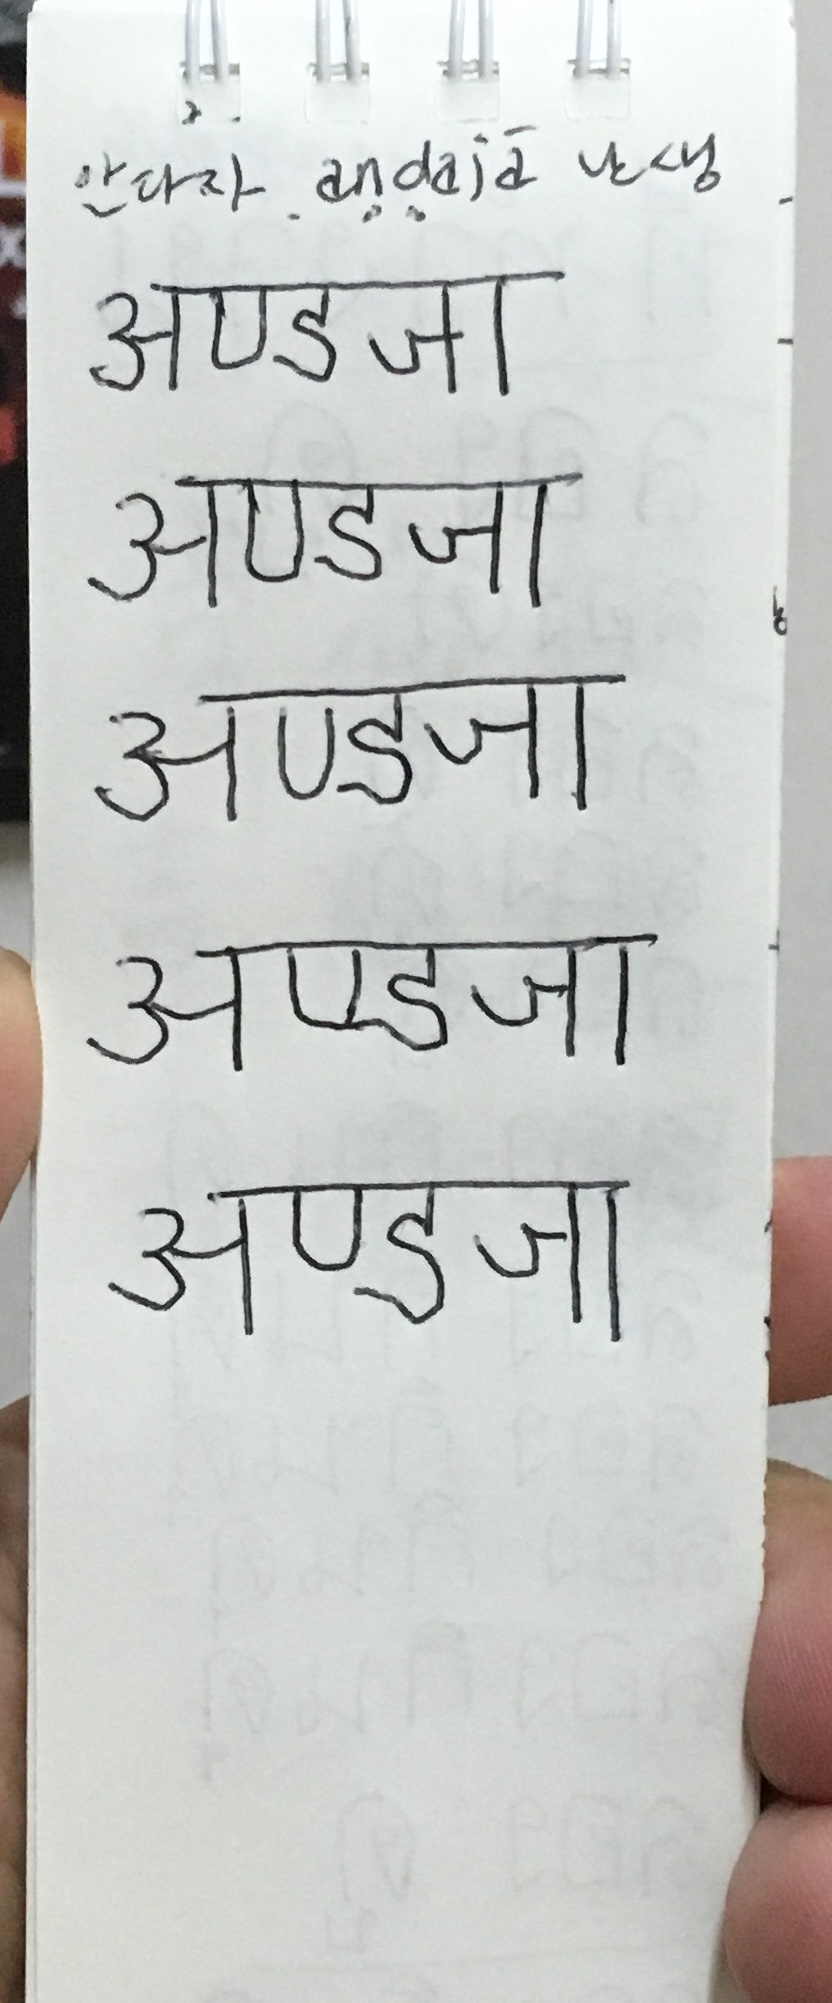 안다자 aṇḍajā 난생
अण्डजा
अण्डजा
अण्डजा
अण्डजा
अण्डजा